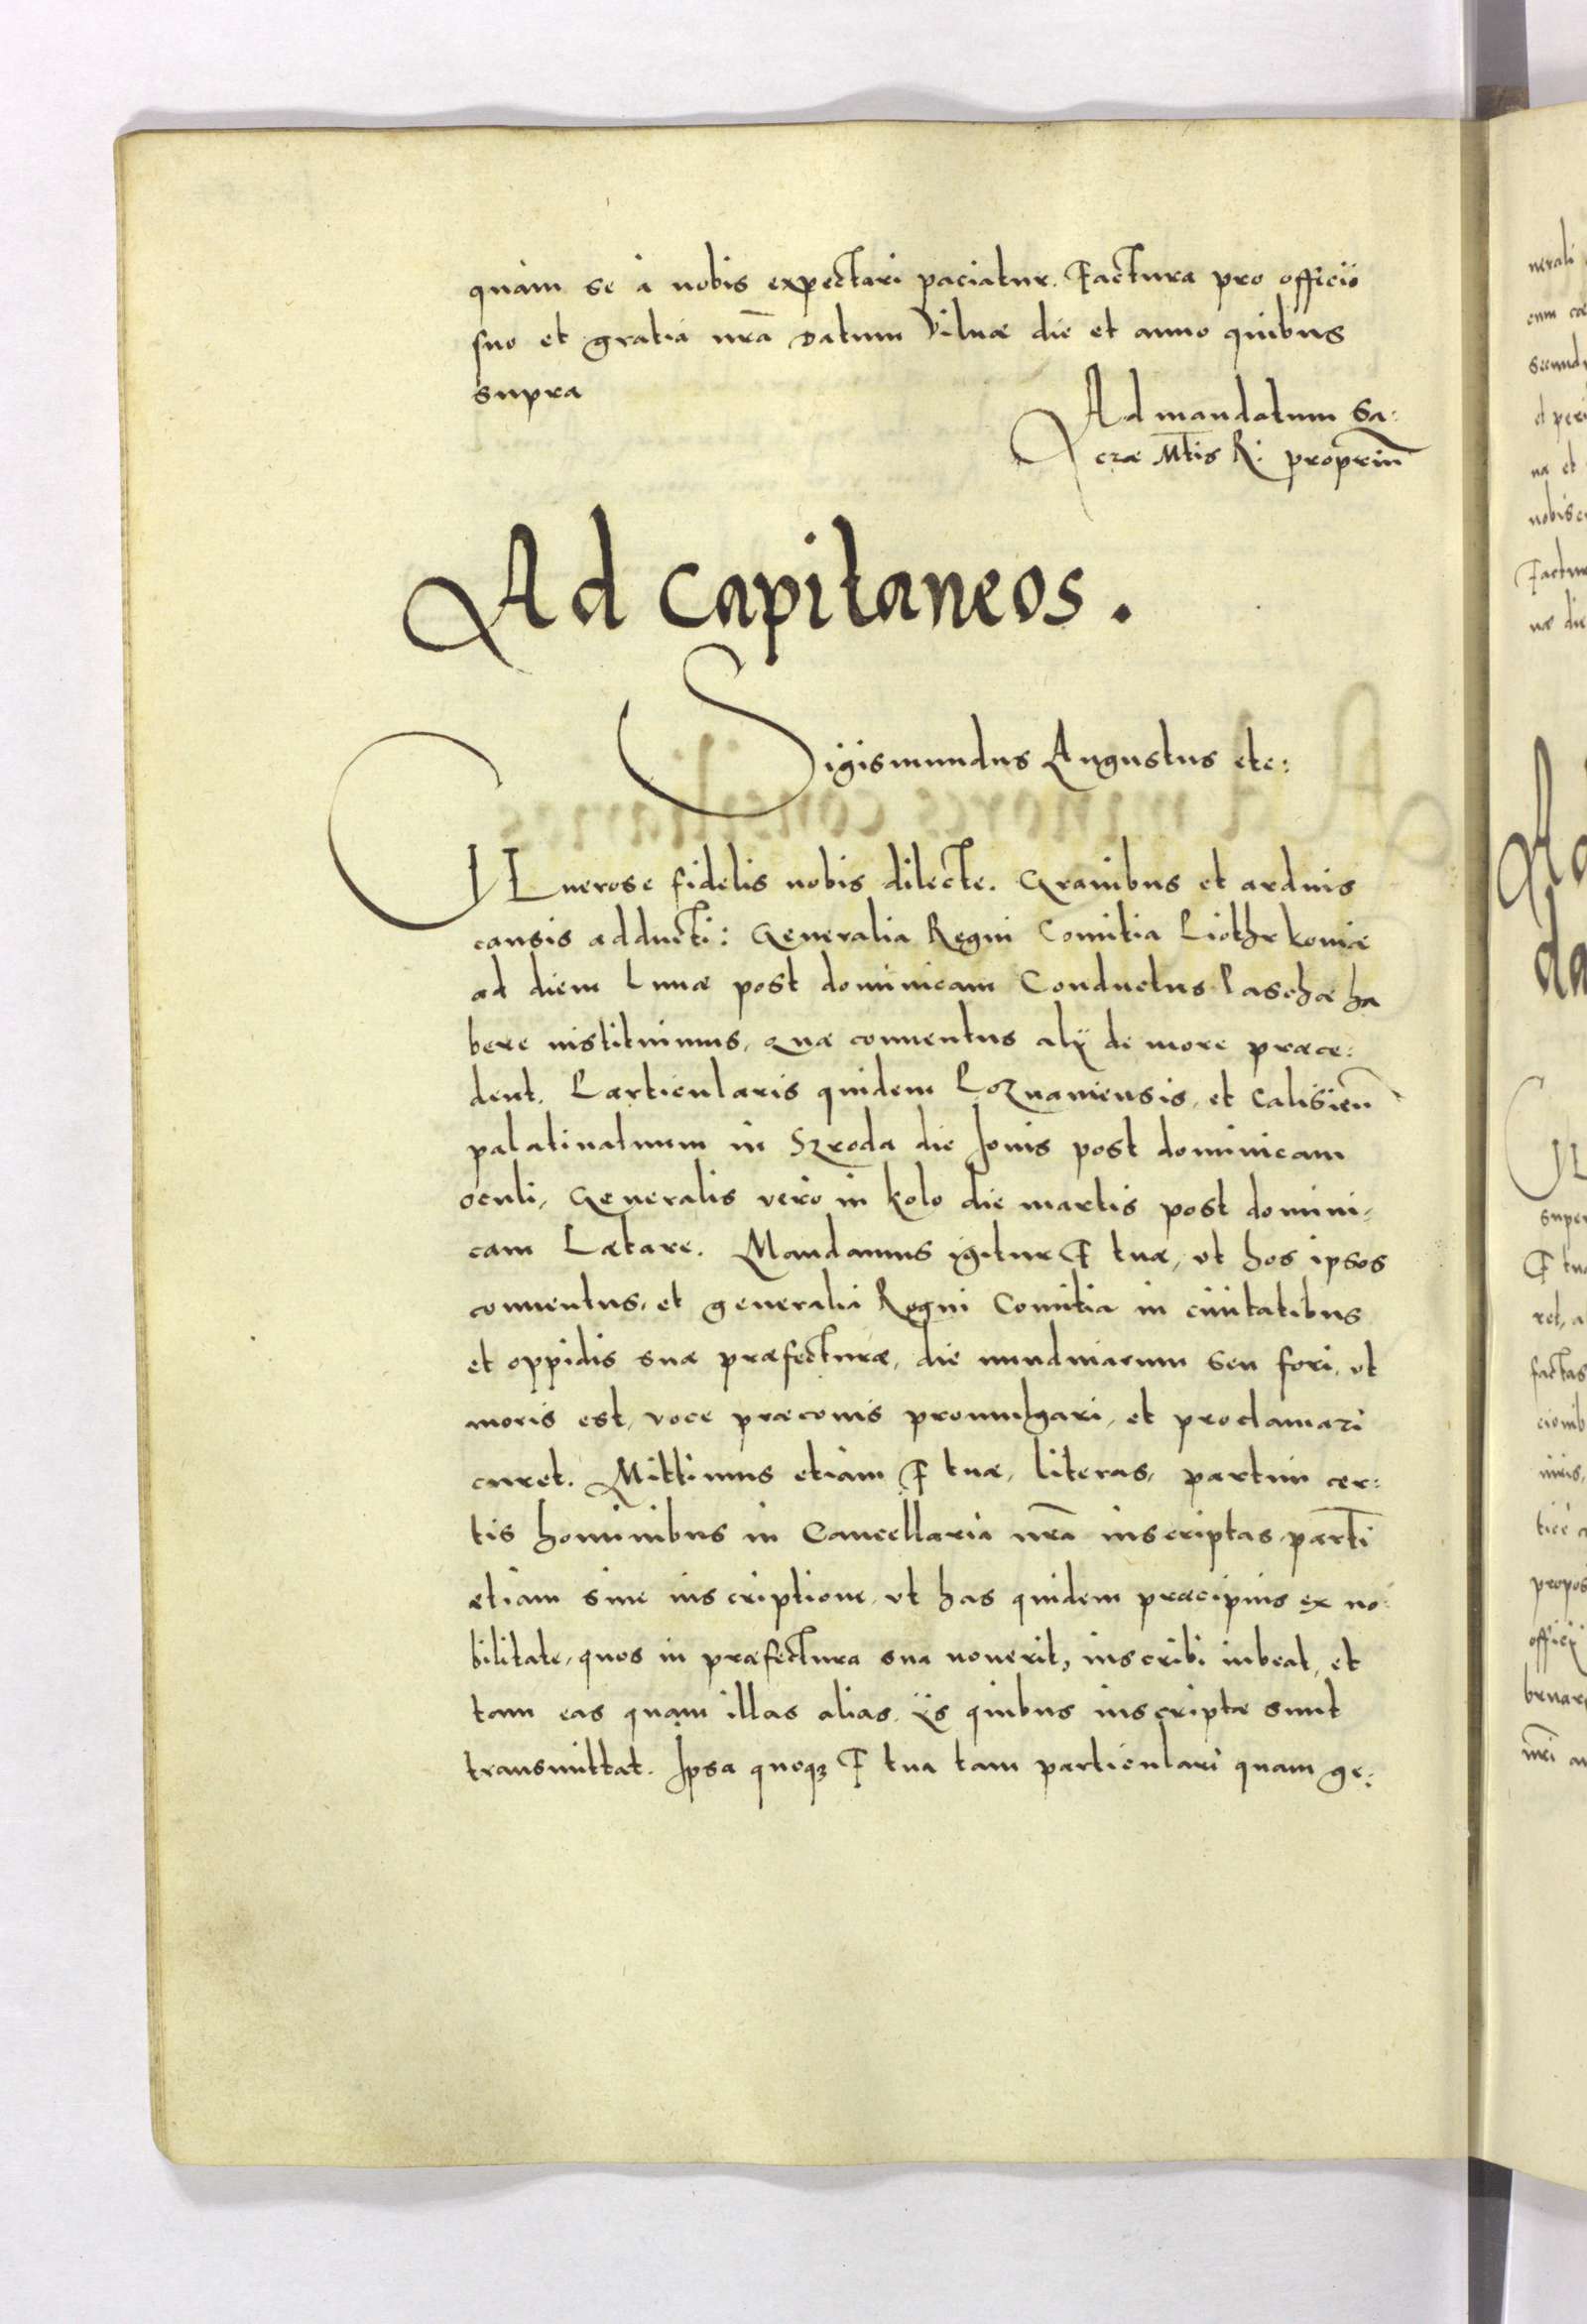 quàm se à nobis expectari paciatur. Factura pro officio
suo et gratia nrã datum Vilnæ die et anno quibus
supra
Ad mandatum Sa:
cræ Mtis R: propriũ
Ad Capitaneos.
Sigismundus Augustus etc:
Generose fidelis nobis dilecte. Gravibus et arduis
causis adducti: Generalia Regni Comitia Piothrkoviæ
ad diem Lunæ post dominicam Conductus Paschæ ha
bere instituimus, quæ conventus alij de more præce:
dent. Particularis quidem Poznaniensis, et Calisieñ
palatinatuum in Szroda die Jovis post dominicam
oculi, Generalis vero in kolo die martis post domini,
cam Lætare. Mandamus igitur F tuæ, ut hos ipsos
conventus, et generalia Regni Comitia in civitatibus
et oppidis suæ præfecturæ, die nundinarum seu fori, ut
moris est, voce præconis promulgari, et proclamari
curet. Mittimus etiam F tuæ, literas, partim cer:
tis hominibus in Cancellaria nrã inscriptas, partĩ
etiam sine inscriptione, ut has quidem præcipuis ex no:
bilitate, quos in præfectura sua noverit, inscribi iubeat, et
tam eas quam illas alias, ijs quibus inscriptæ sunt
transmittat. Ipsa quoqȝ F tua tam particulari quam ge: